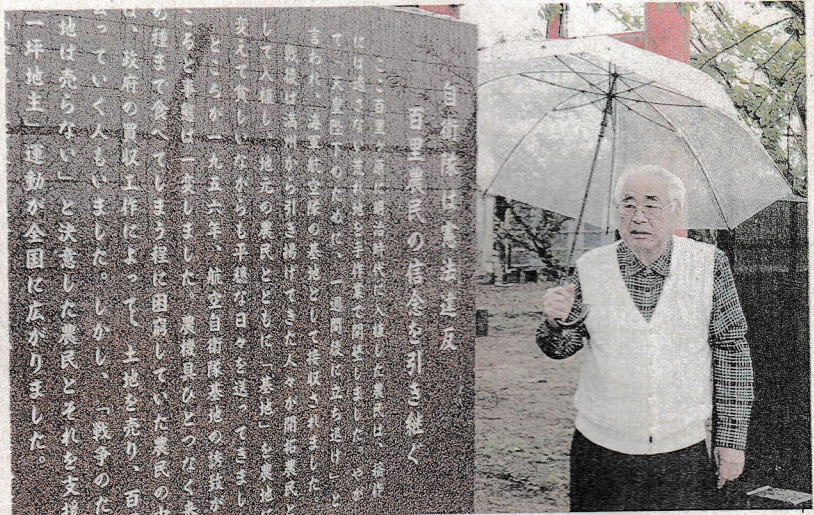 自衛隊は憲法違反
百里農民の信念を引き継ぐ
ここ百里
には適さない荒れ地を手作業で開墾しました。やが
て「天皇陛下のために、一週間後に立ち退け」と
言われ、海軍航空隊の基地として接収されました。
戦後は満州から引き揚げてきた人々が開拓農民と
して入植し、地元の農民とともに「基地」を農地に
変えて貧しいながらも平穏な日々を送ってきまし
ところが一九五六年、航空自衛隊基地の誘致が
こると事態は一変しました。農機具ひとつなく
の種まで食べてしまう程に困窮していた農民の
は、政府の買収工作によって、土地を売り、百
なっていく人もいました。しかし、「戦争のた
地は売らない」と決意した農民とそれを支援
一坪地主」運動が全国に広がりました。